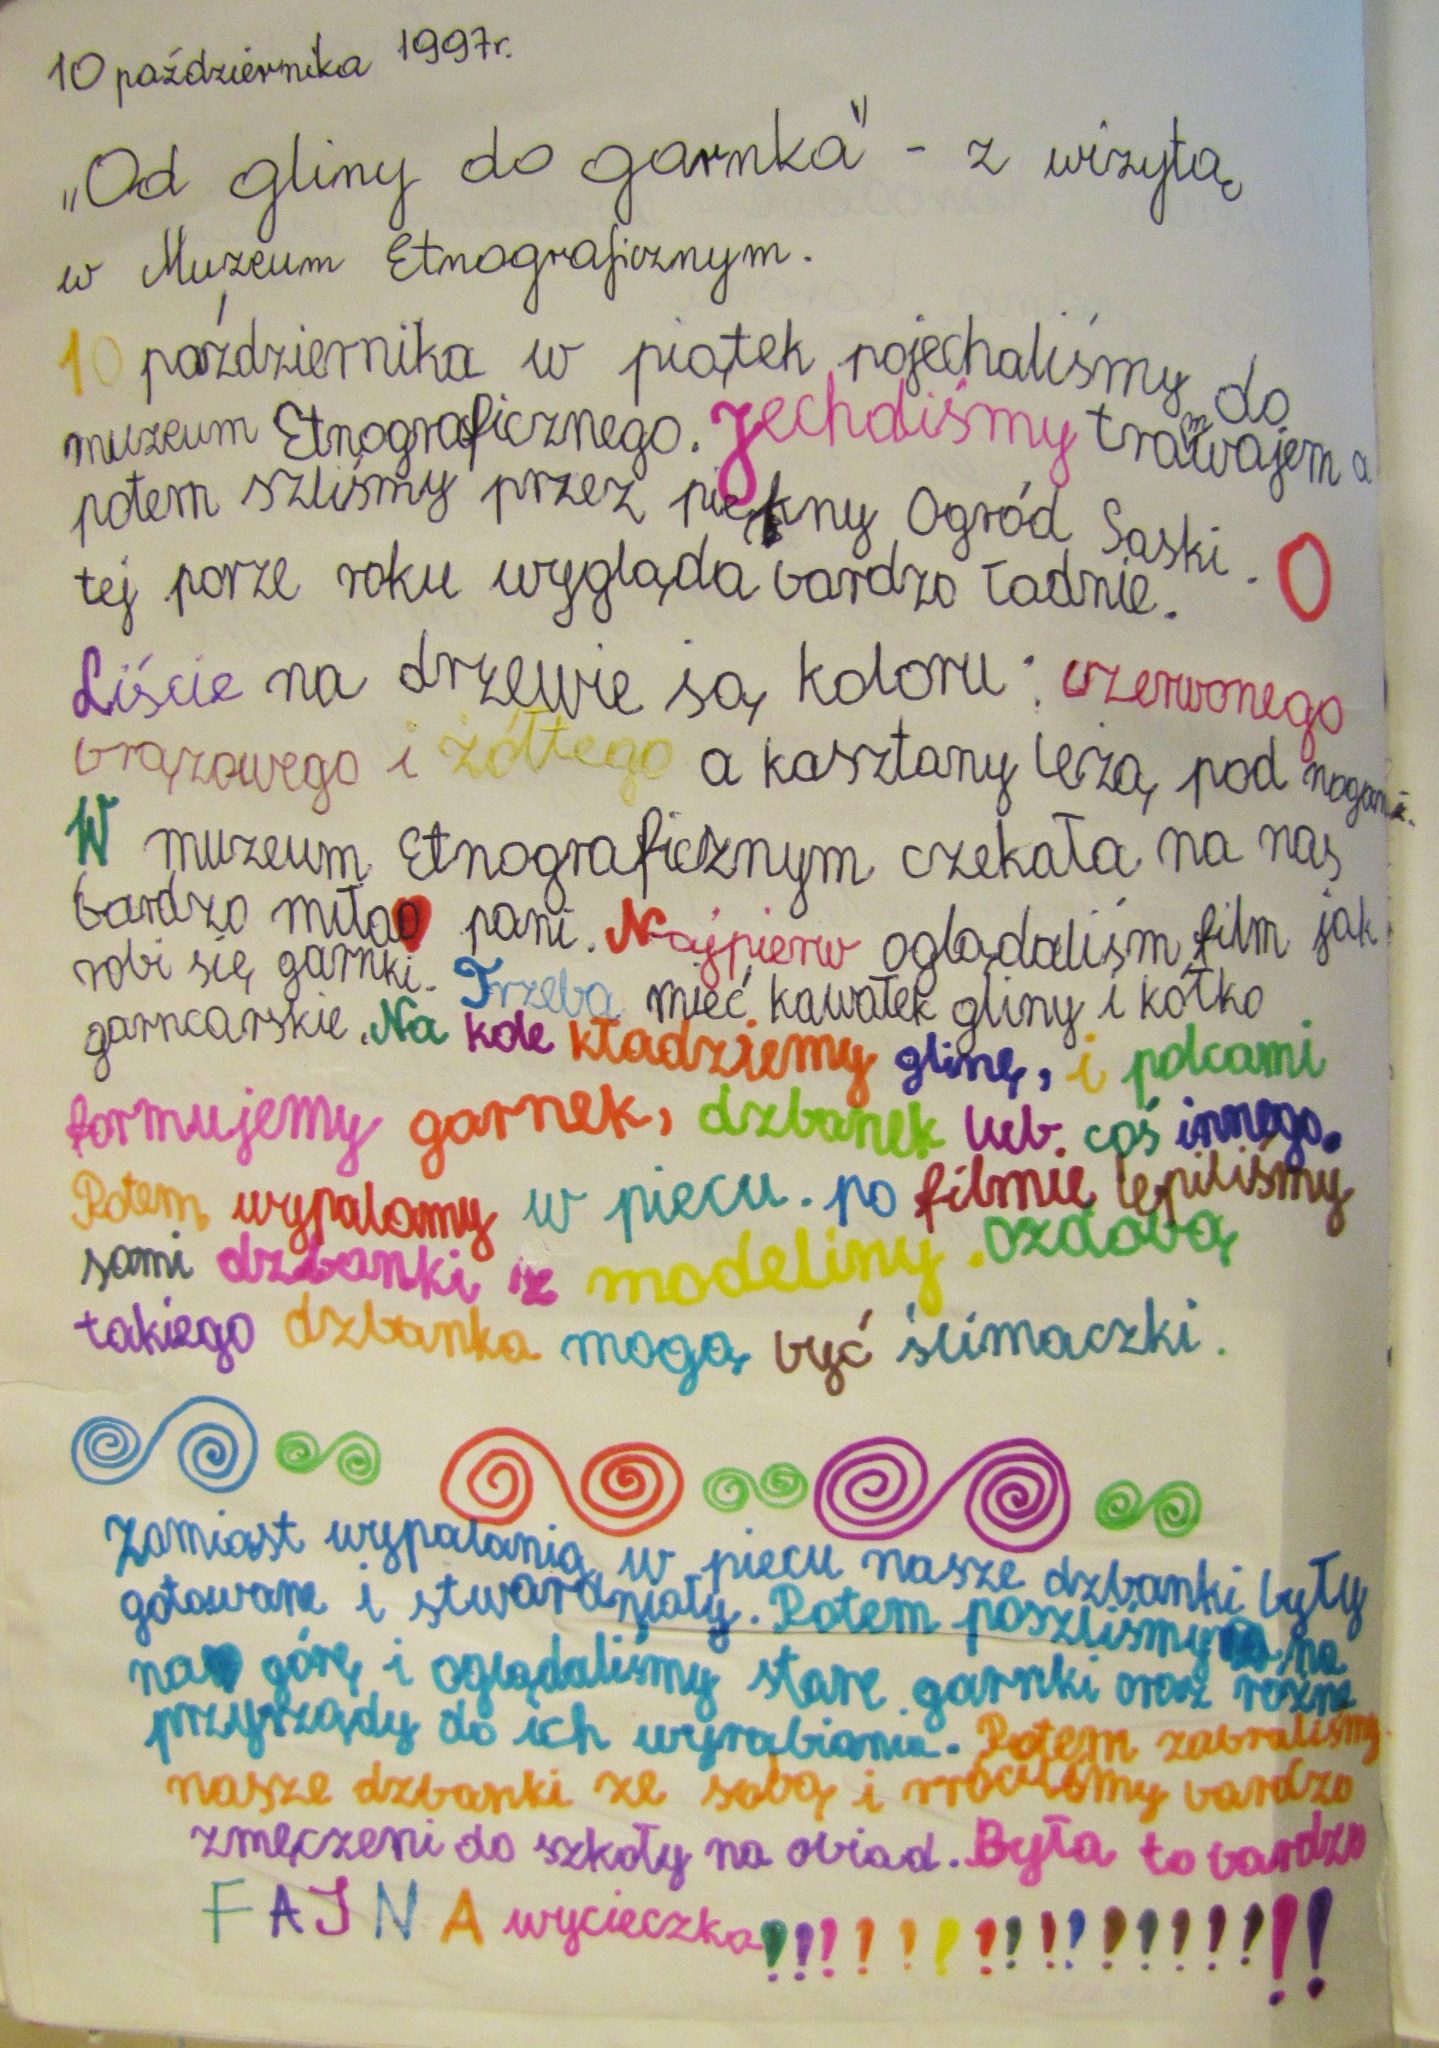 10 października 1997r.
„Od gliny do garnka" - z wizytą
w Muzeum Etnograficznym.
10 października w piątek pojechaliśmy do
muzeum Etnograficznego. Jechaliśmy tramwajem a
potem szliśmy przez piękny Ogród Saski. O
tej porze roku wygląda bardzo ładnie.
Liście na drzewie są koloru: czerwonego
brązowego i żółtego a kasztany leżą pod nogami.
W muzeum Etnograficznym czekała na nas
bardzo miła pani. Najpierw oglądaliśm film jak
robi się garnki. Trzeba mieć kawałek gliny i kółko
garncarskie. Na kole kładziemy glinę, i palcami
formujemy garnek, dzbanek lub coś innego.
Potem wypalamy w piecu. po filmie lepiliśmy
sami dzbanki z modeliny. ozdobą
takiego dzbanka mogą być ślimaczki.
Zamiast wypalania w piecu nasze dzbanki były
gotowane i stwardniały. Potem poszliśmy na
na górę i oglądaliśmy stare garnki oraz różne
przyrządy do ich wyrabiania. Potem zabraliśmy
nasze dzbanki ze sobą i wróciliśmy bardzo
zmęczeni do szkoły na obiad. Była to bardzo
FAJNA wycieczka!!!!!!!!!!!!!!!!!!